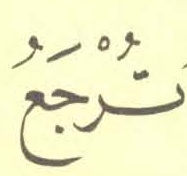 تُرْجَعُ